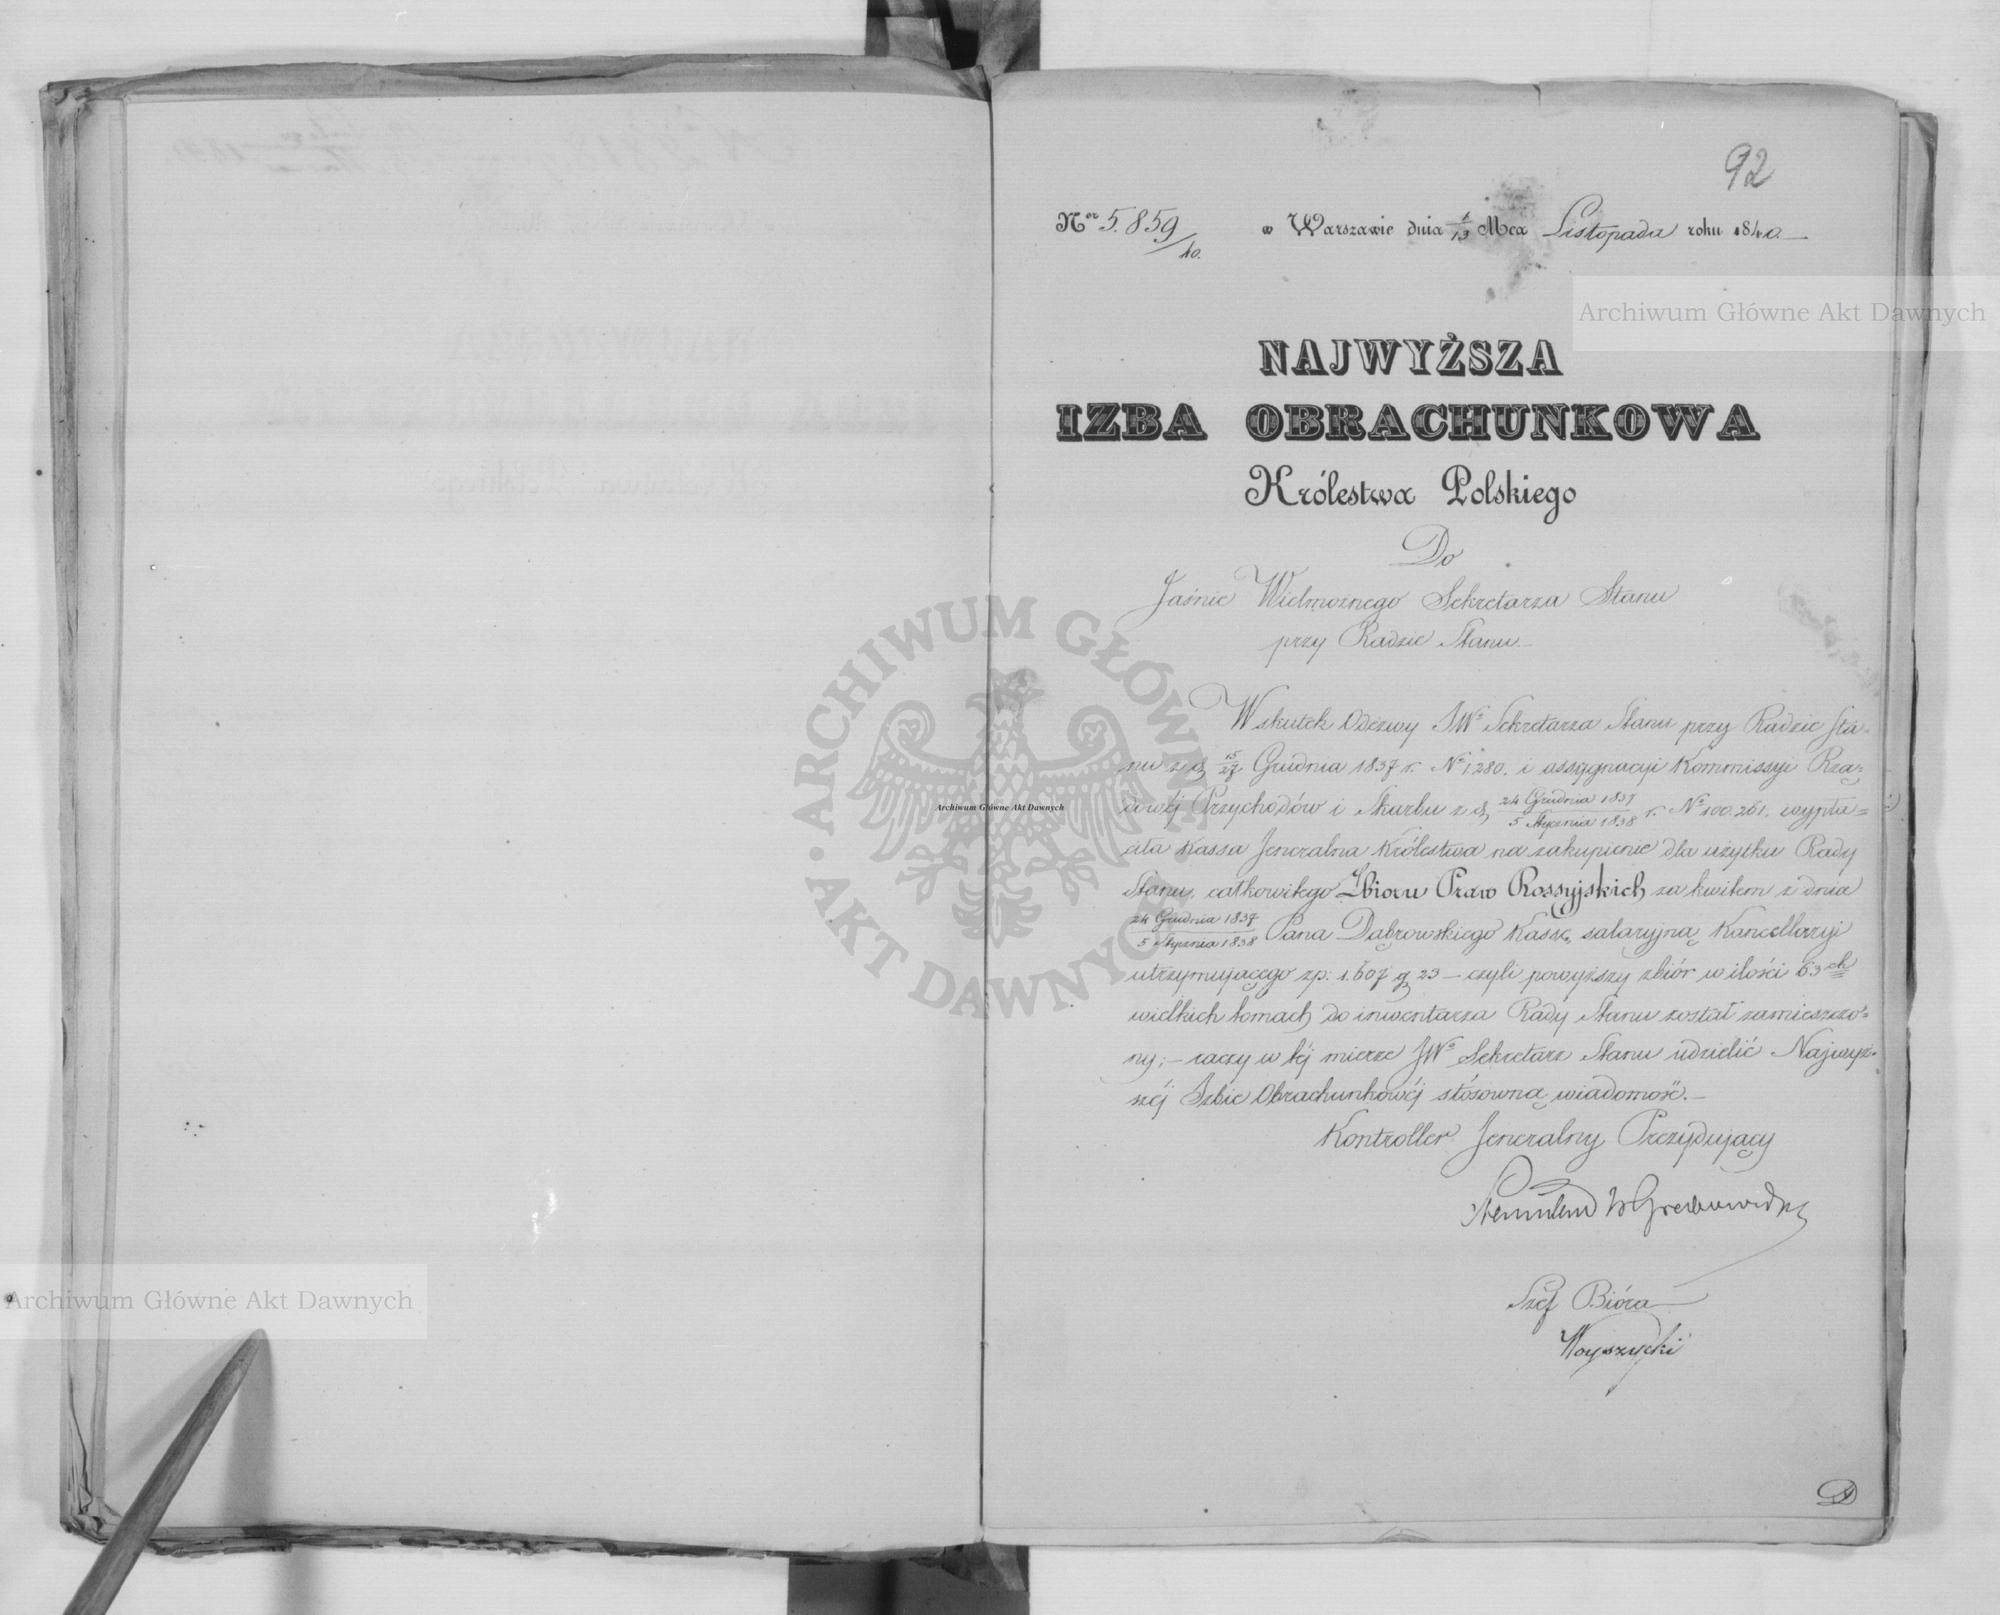 92
Ner 5.859/40. w Warszawie dnia 1/13 Mca Listopada roku 1840.
Archiwum Główne Akt Dawnych
NAJWYŻSZA
IZBA OBRACHUNKOWA
Królestwa Polskiego
Do
Jaśnie Wielmożnego Sekretarza Stanu
przy Radzie Stanu.
Wskutek Odezwy JWo Sekretarza Stanu przy Radzie Sta-
nu z d. 15/27 Grudnia 1837 r. No 1280. i assygnacyi Kommissyi Rzą=
dowéj Przychodów i Skarbu z d. 24 Grudnia 1837/5 Stycznia 1838 r. No 100.261. wypła=
ciła Kassa Jeneralna Królestwa na zakupienie dla użytku Rady
Stanu, całkowitego Zbioru Praw Rossyjskich za kwitem z dnia
24 Grudnia 1837/5 Stycznia 1838 Pana Dąbrowskiego Kassę salaryjną Kancellaryi
utrzymującego zp: 1.607 g 23 – czyli powyższy zbiór w ilości 63ch
wielkich tomach do inwentarza Rady Stanu został zamieszczo=
ny; – raczy w téj mierze JWo Sekretarz Stanu udzielić Najwyż-
széj Izbie Obrachunkowéj stósowną wiadomość. –
Kontroller Jeneralny Prezydujący
Szef Bióra
Woyszycki
ARCHIWUM GŁÓWNE AKT DAWNYCH
Archiwum Główne Akt Dawnych
Archiwum Główne Akt Dawnych